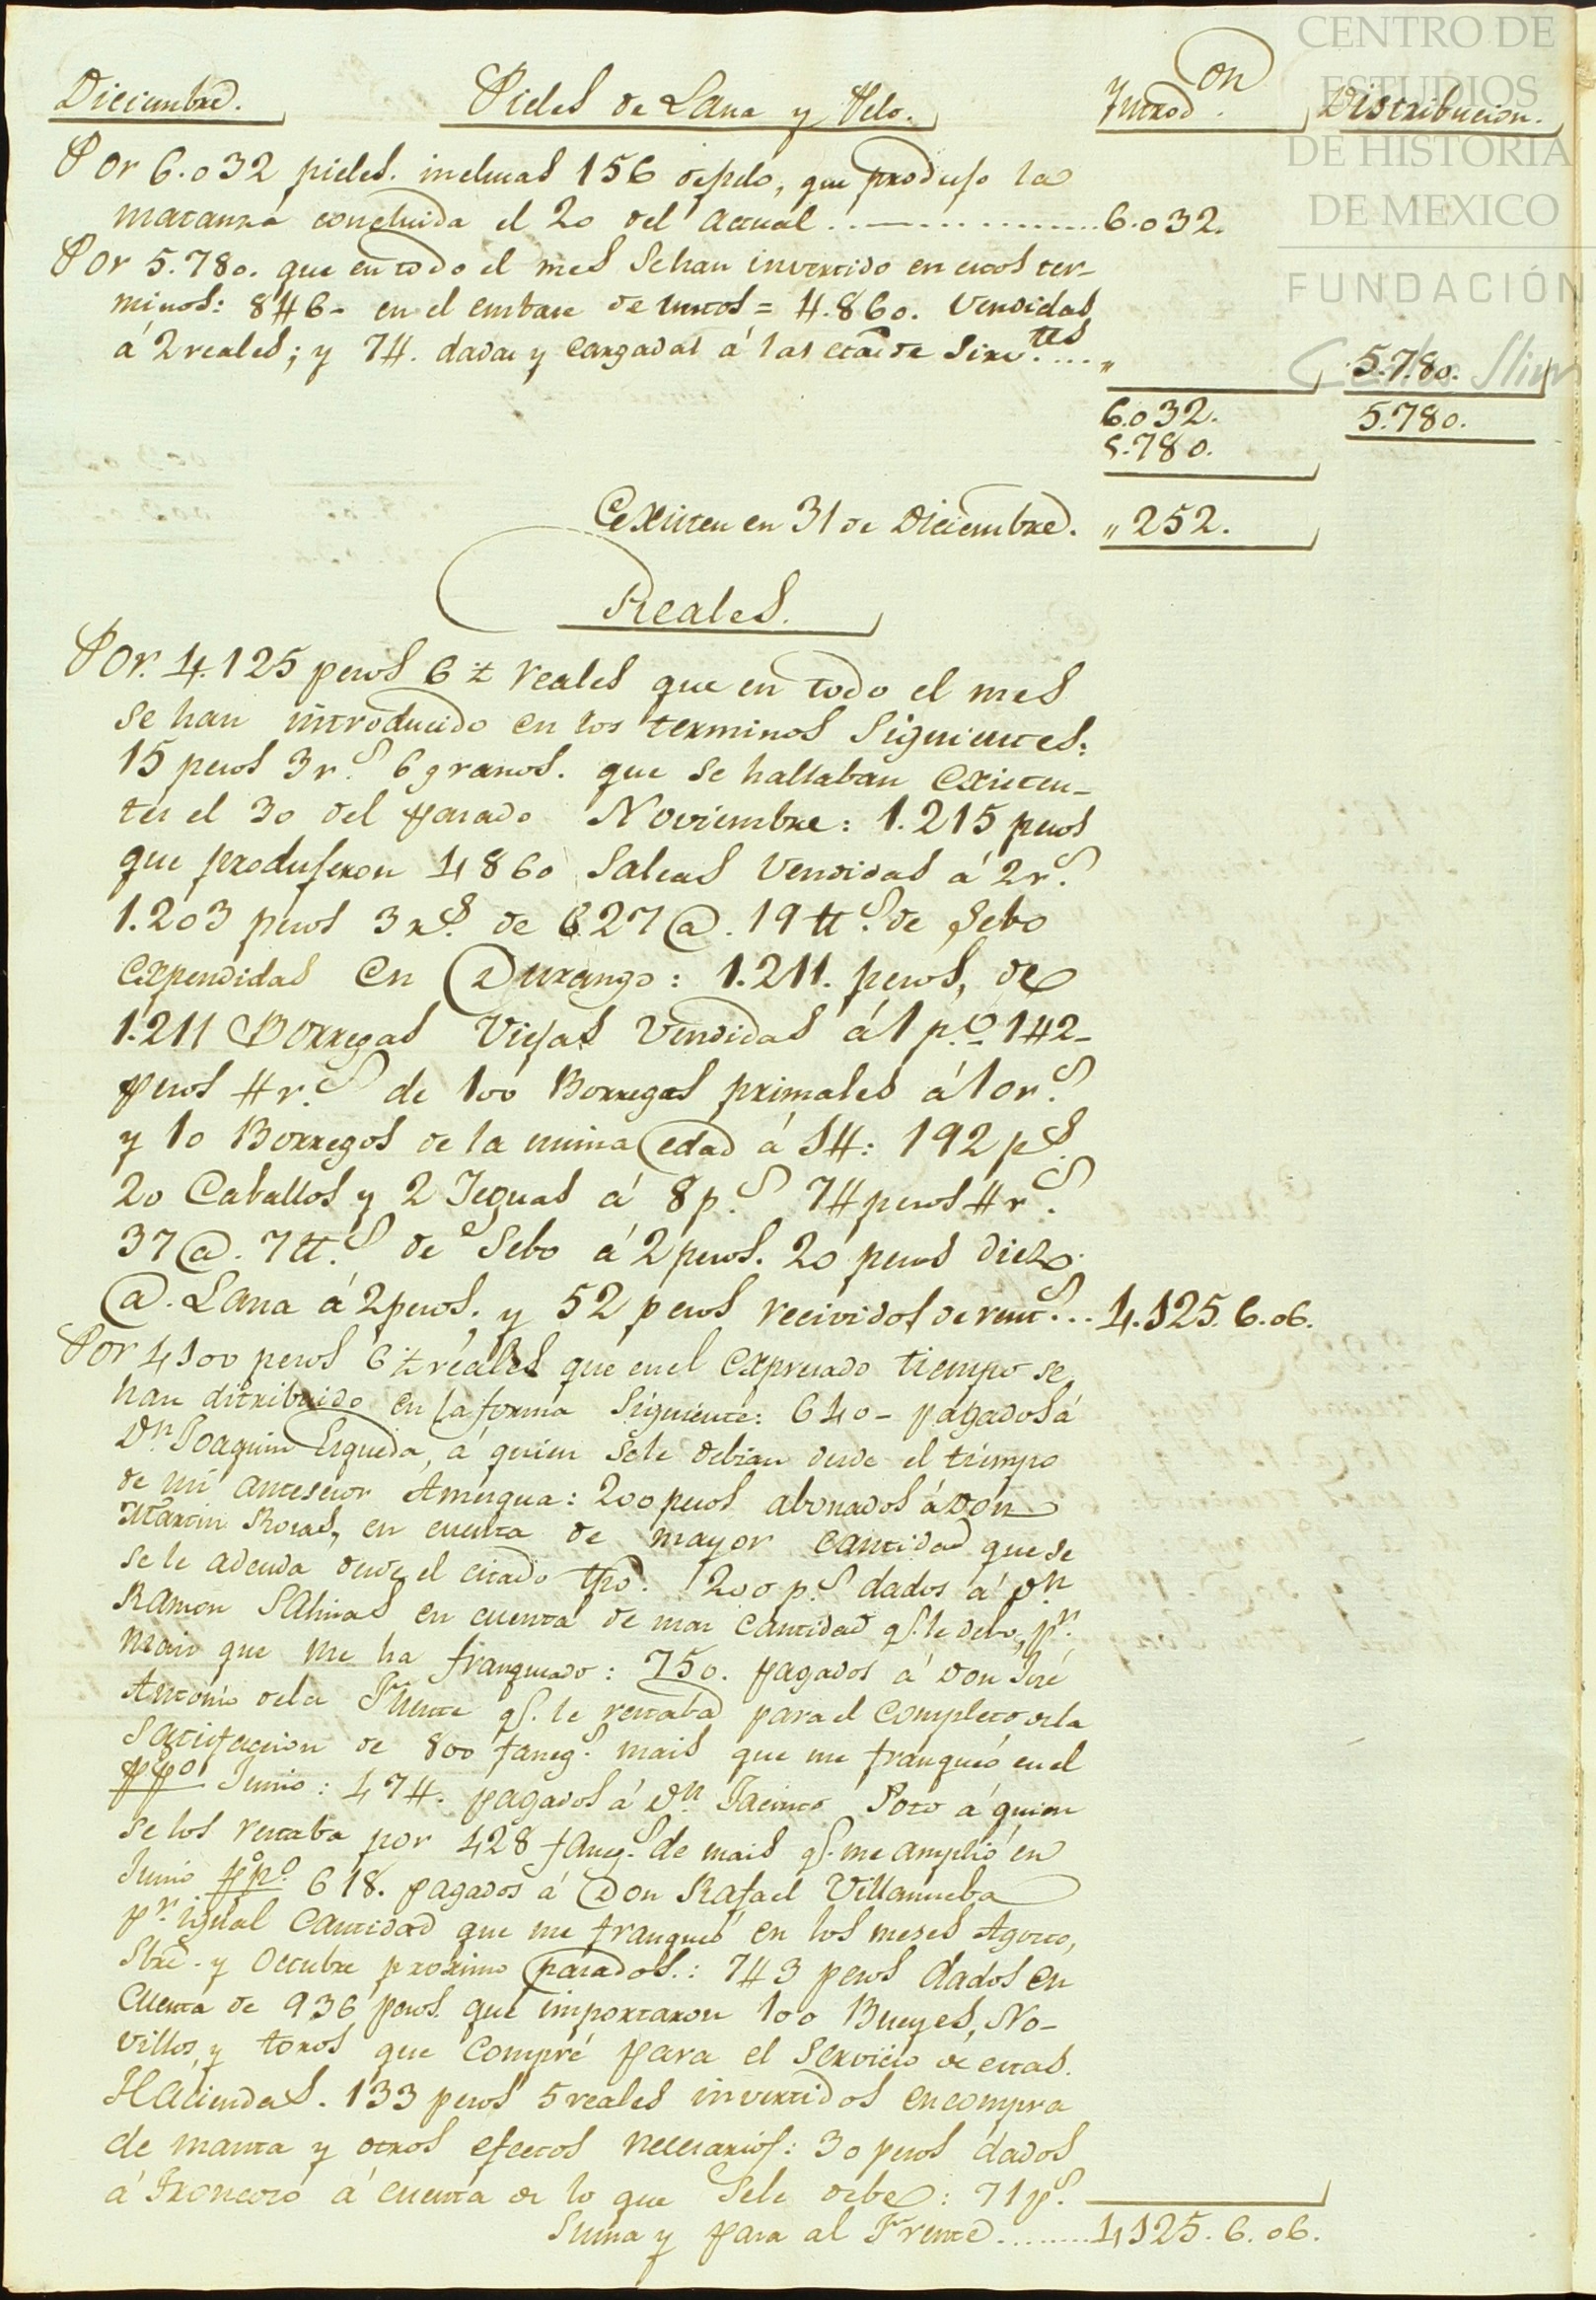 CENTRO DE
ESTUDIOS
DE HISTORIA
DE MEXICO
FUNDACIÓN
Carlos Slim
Diciembre. Pieles de Lana y Pelo. Introdon. Distribucion.
Por 6.032 pieles. inclusas 156 de pelo, que produjo la
matanza concluida el 20 del actual ................ 6.032.
Por 5.780. que en todo el mes se han invertido en estos ter-
minos: 846- en el embase de untos = 4.860. Vendidas
á 2 reales; y 74. dadas y cargadas á las ctas de Sirvtes .... " 5.780.
6.032. 5.780.
5.780.
Existen en 31 de Diciembre. " 252.
Reales.
Por. 4.125 pesos 6½ reales que en todo el mes
se han introducido en los terminos Siguientes:
15 pesos 3 rs. 6 granos. que se hallaban existen-
tes el 30 del pasado Noviembre: 1.215 pesos
que produjeron 4860 Saleas Vendidas á 2 rs.
1.203 pesos 3 rs. de 627 @. 19 tts. de Sebo
expendidas en Durango: 1.211. pesos, de
1.211 Borregas Viejas Vendidas á 1 po. 142-
pesos 4 rs. de 100 Borregas primales á 10 rs.
y 10 Borregos de la misma edad á 14: 192 ps.
20 Caballos y 2 Yeguas á 8 ps. 74 pesos 4 rs.
37 @. 7 tts. de Sebo á 2 pesos. 20 pesos diez
@. Lana á 2 pesos. y 52 pesos recividos de rents... 4.125. 6. 06.
Por 4100 pesos 6½ reales que en el expresado tiempo se
han ditribuido en la forma Siguiente: 640- pagados á
Dn. Joaquin Esqueda, á quien se le debian desde el tiempo
de mi antesesor Amezgua: 200 pesos abonados á Don
Martin Rosas, en cuenta de mayor cantidad que se
se le adeuda desde el citado tpo. 200 ps. dados á Dn.
Ramon Salinas en cuenta de mas cantidad q. le debo, pr.
mais que me ha franqueado: 750. pagados á Don José
Antonio de la Fuente q. le restaba para el completo de la
Satisfacion de 800 fanegs. mais que me franqueó en el
ppo. Junio: 474. pagados á Dn. Jacinto Soto á quien
se los restaba por 428 fanegs. de mais q. me amplió en
Junio ppo. 618. pagados á Don Rafael Villanueba
pr. igual cantidad que me franqueó en los meses Agosto,
Sbre. y Octubre proximo pasados.: 743 pesos dados en
Cuenta de 936 pesos. que importaron 100 Bueyes, No-
villos, y toros que compré para el Servicio de estas.
Haciendas. 133 pesos 5 reales invertidos en compra
de manta y otros efectos necesarios: 30 pesos dados
á á cuenta de lo que se le debe: 71 ps.
Suma y pasa al Frente ........ 4,125. 6. 06.